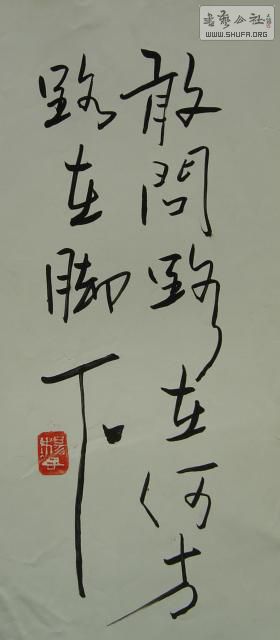 敢問路在何方
路在脚下
书艺公社
WWW.SHUFA.ORG